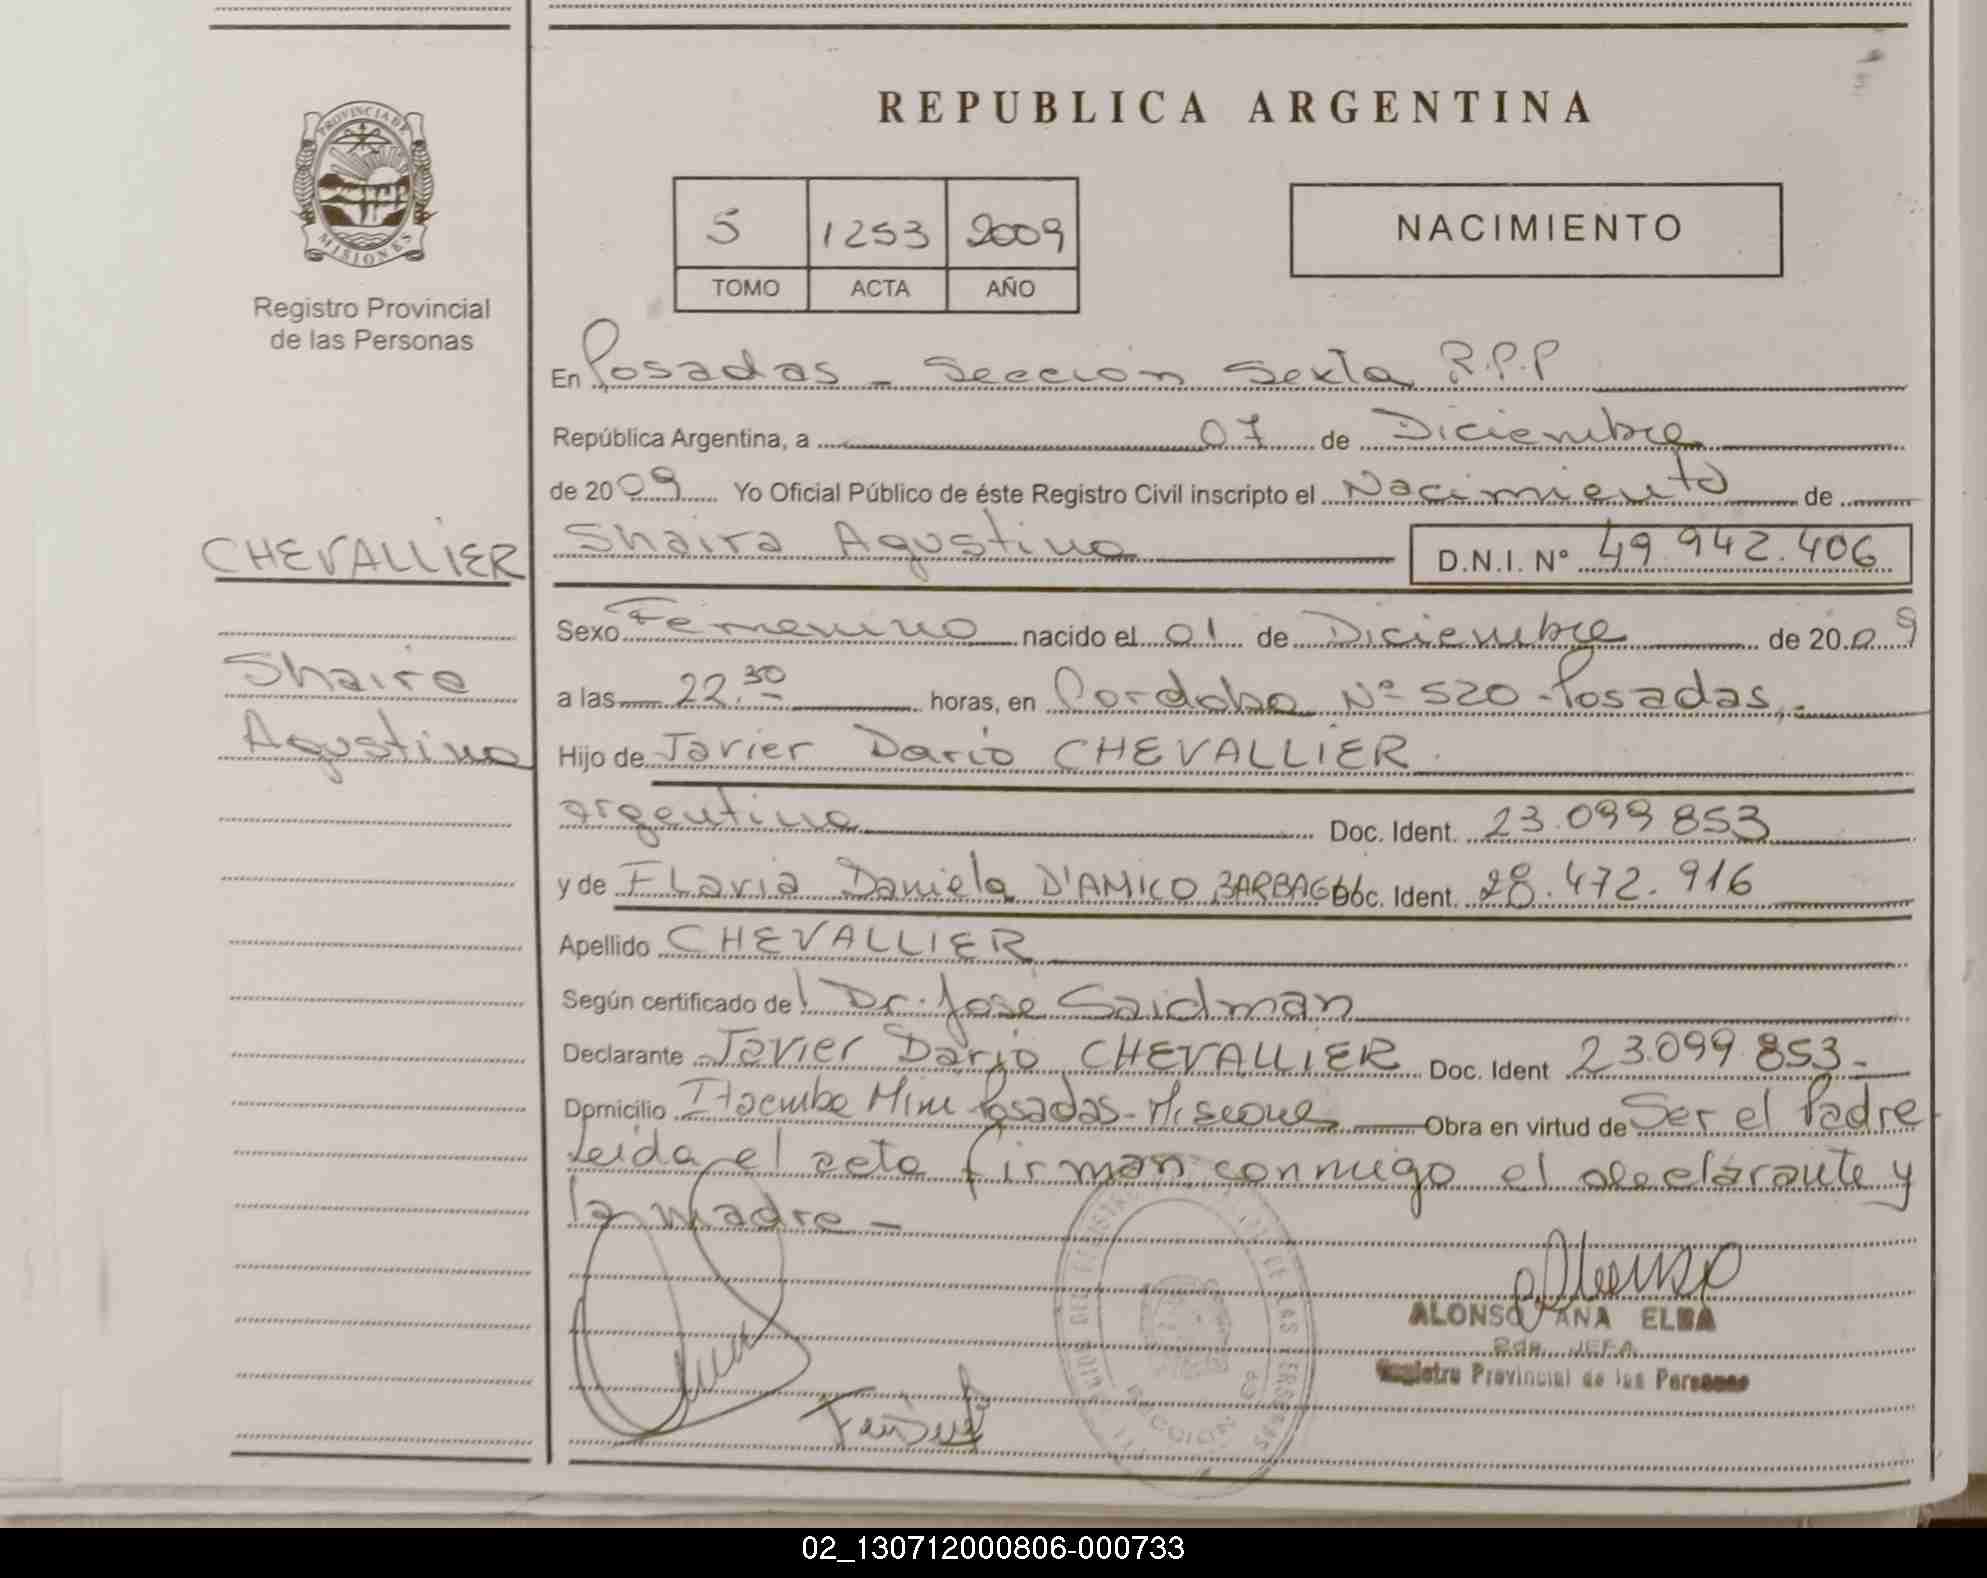 REPUBLICA ARGENTINA
PROVINCIA DE
MISIONES
Registro Provincial
de las Personas
5 1253 2009
TOMO ACTA AÑO
NACIMIENTO
En Posadas - Seccion Sexta R.P.P
República Argentina, a 07 de Diciembre
de 2009 Yo Oficial Público de éste Registro Civil inscripto el Nacimiento de
CHEVALLIER
Shaira Agustina D.N.I. Nº 49.942.406
Sexo Femenino nacido el 01 de Diciembre de 2009
Shaira
a las 22.30 horas, en Cordoba Nº 520 - Posadas,-
Agustina
Hijo de Javier Dario CHEVALLIER
argentino Doc. Ident. 23.099.853
y de Flavia Daniela D'AMICO Doc. Ident. 28.472.916
Apellido CHEVALLIER
Según certificado del Dr. José Saidman
Declarante Javier Dario CHEVALLIER Doc. Ident 23.099.853-
Domicilio Itaembe Mini Posadas - Misiones Obra en virtud de Ser el Padre
Leida el acta firman conmigo el declarante y
la madre -
ALONSO ANA ELBA
2da. JEFA
Registro Provincial de las Personas
02_130712000806-000733